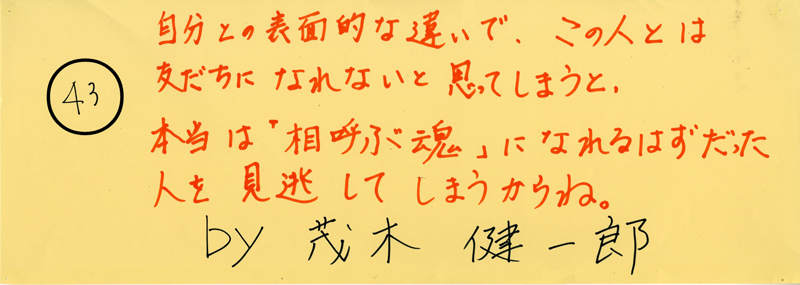 43
自分との表面的な違いで、この人とは
友だちになれないと思ってしまうと、
本当は「相呼ぶ魂」になれるはずだった
人を見逃してしまうからね。
by 茂木 健一郎